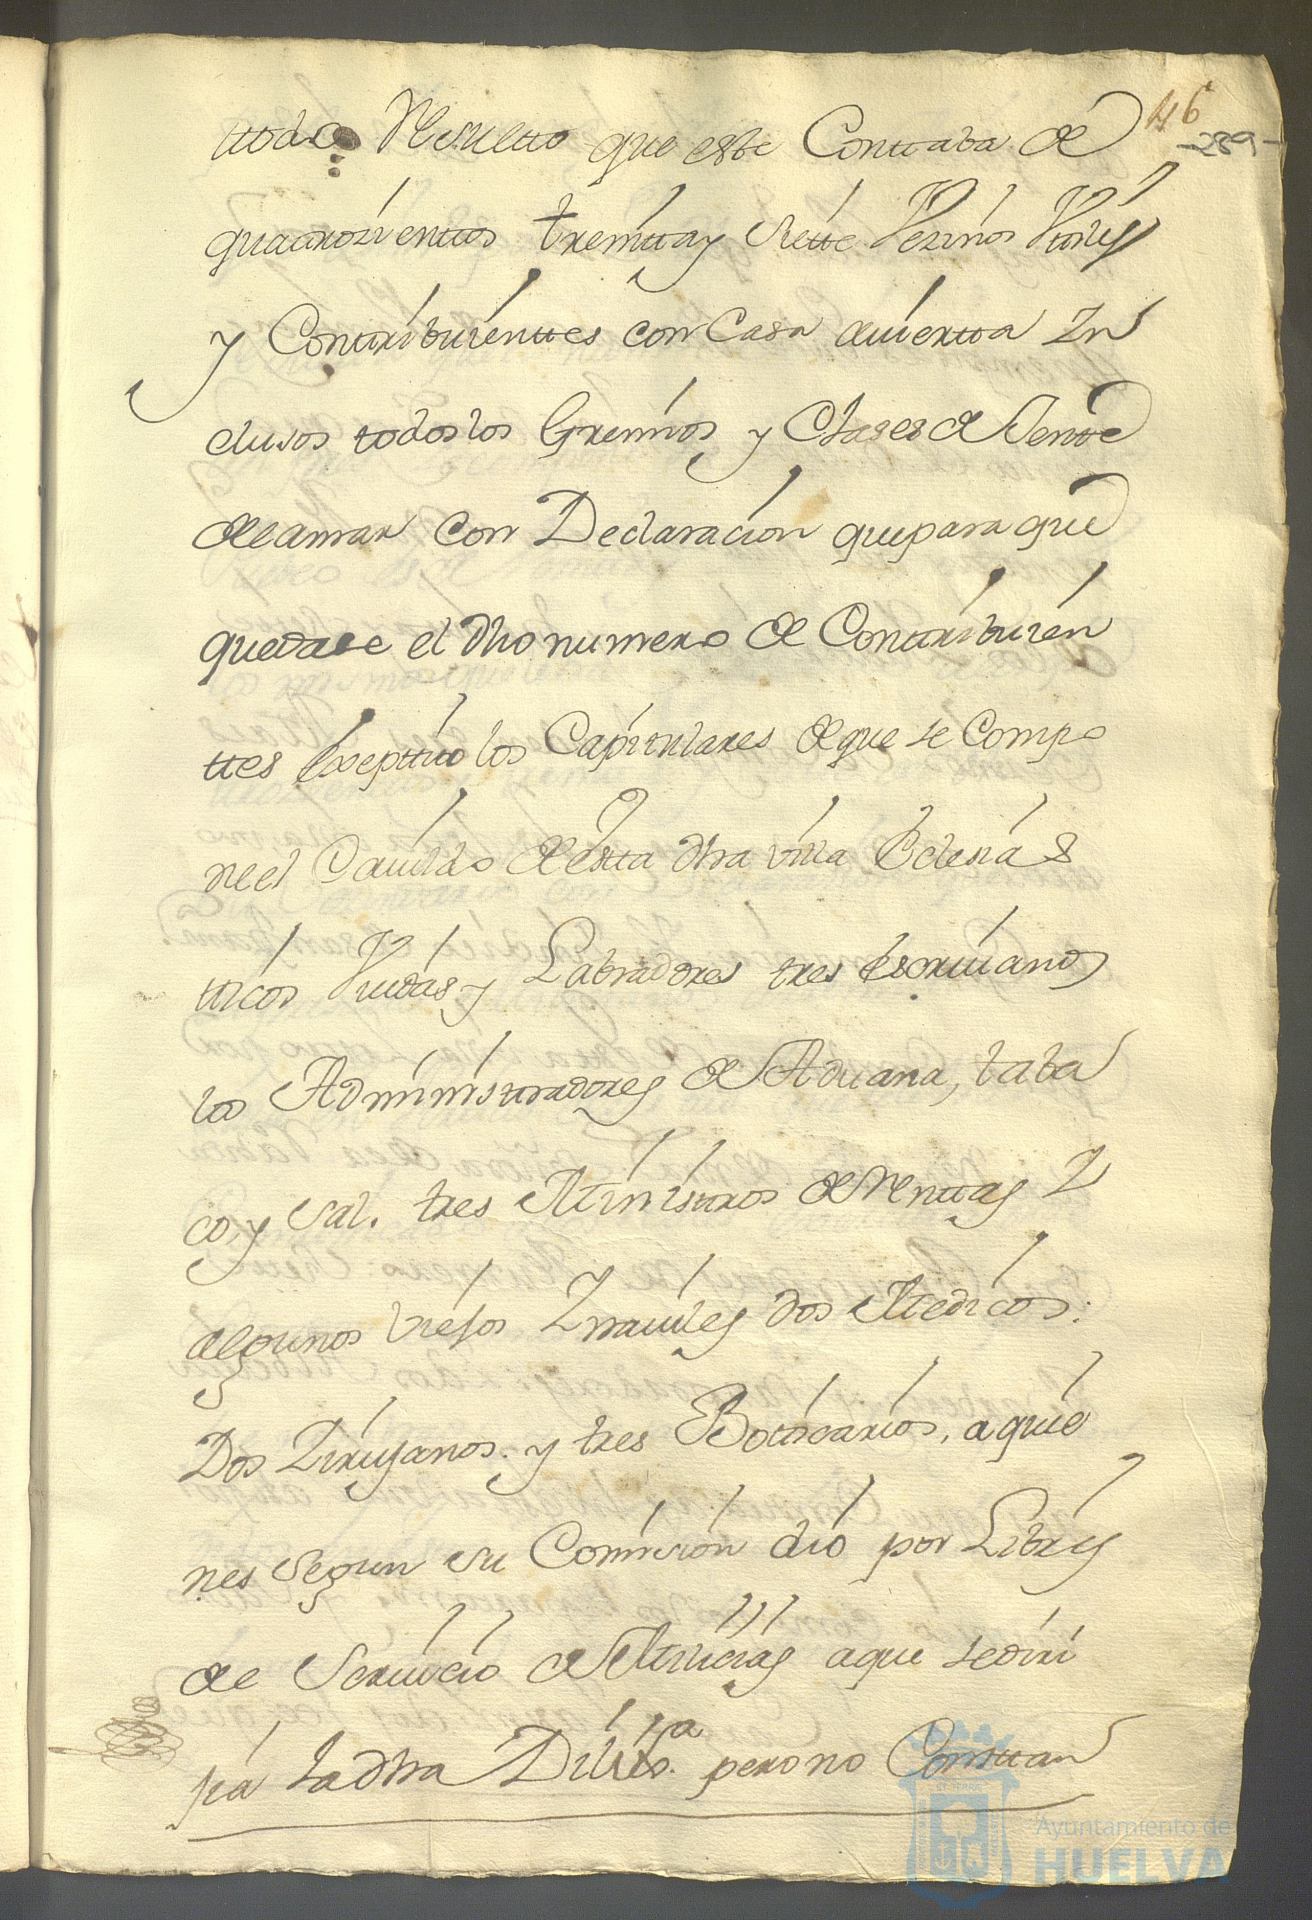 46
-289-
ttodo Resultto que este Conttaba de
quattrozienttos treintta y Siette Vezinos Uttiles
y Conttribuienttes con Casa auiertta Yn
clusos todos los Gremios y Clases de Jente
de la mar Con Declaracion que para que
quedase el dho numero de Conttribuien
ttes exepttuo los Capitulares de que se Compo
ne el Cauildo de estta dha villa Eclesias
ticos Viudas y Labradores tres escriuanos
los Administtradores de Aduana, taba
co, y Sal. tres Ministtros de Renttas Y
algunos viejos Ynauiles dos Medicos:
Dos Zirujanos. y tres Boticarios, a quie
nes Segun su Comision dio por Libres
de Seruicio de Milicias a que se diri
jia la dha Dilix.a pero no Consttan
Ayuntamiento de
HUELVA